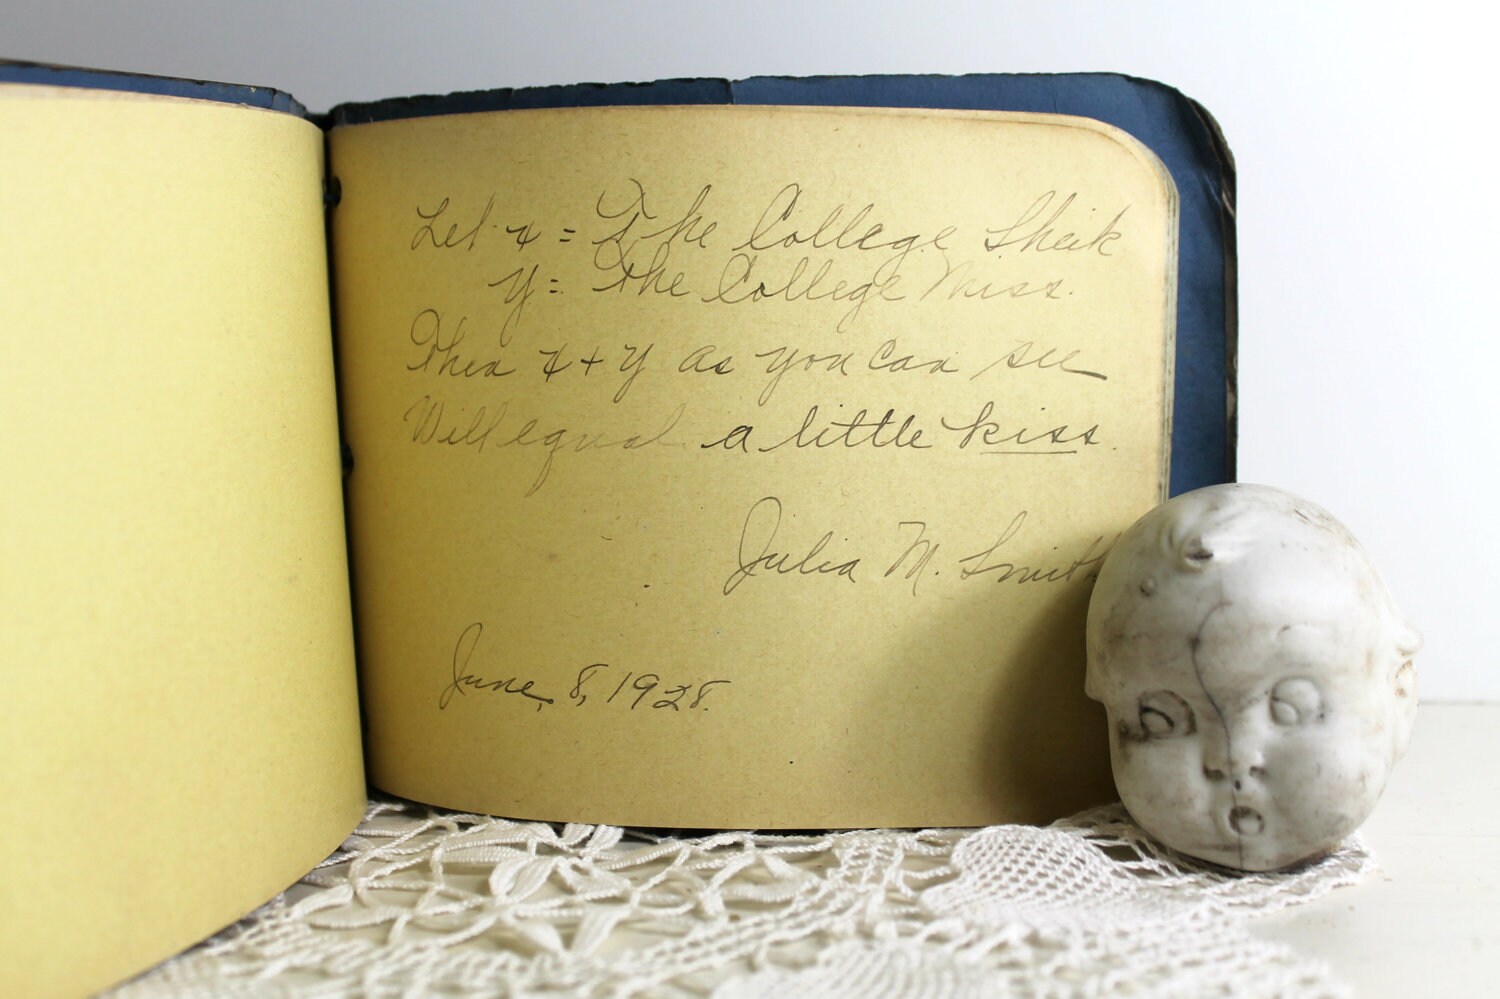 Let x = The College Sheik
y = The College Miss.
Then x + y as you can see
Will equal a little kiss.
Julia M. Smith
June, 8, 1928.